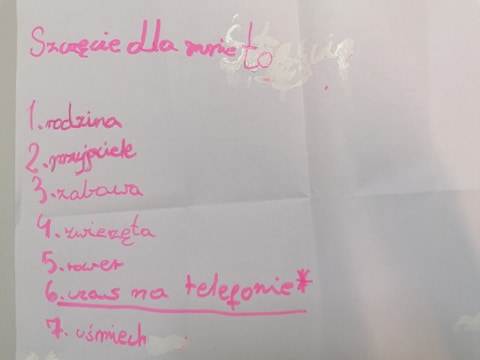 Szczęcie dla mnie to
1. rodzina
2. przyjaciele
3. zabawa
4. zwierzęta
5. rower
6. czas na telefonie*
7. uśmiech